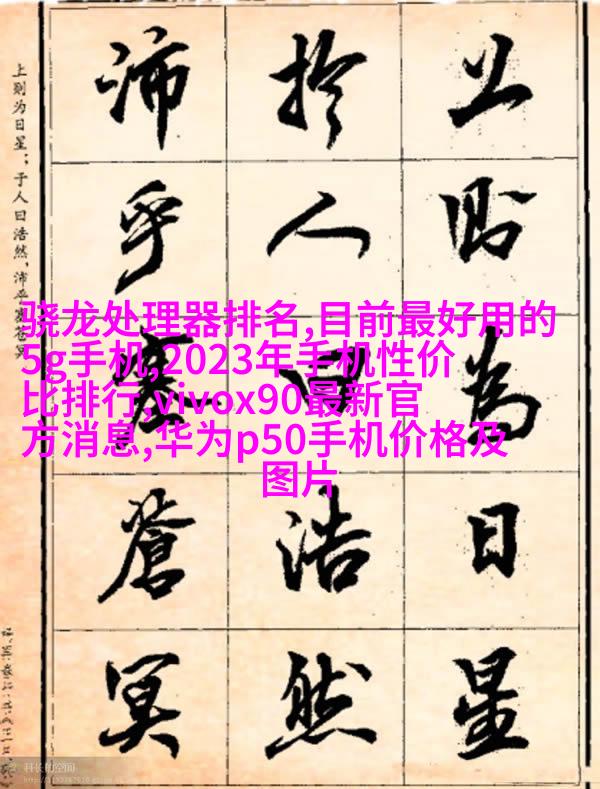 上則為日星
於人曰浩然
沛乎塞蒼冥
上则为日星;于人曰浩然,沛乎塞苍冥
骁龙处理器排名,目前最好用的
5g手机,2023年手机性价
比排行,vivox90最新官
方消息,华为p50手机价格及
图片
科长的空间